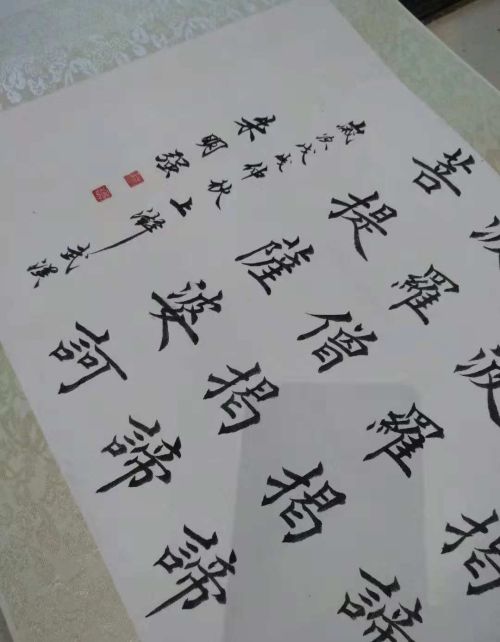 揭諦
波羅揭諦
波羅僧揭諦
菩提薩婆訶
歲次戊戌仲秋上澣武漢
朱明强